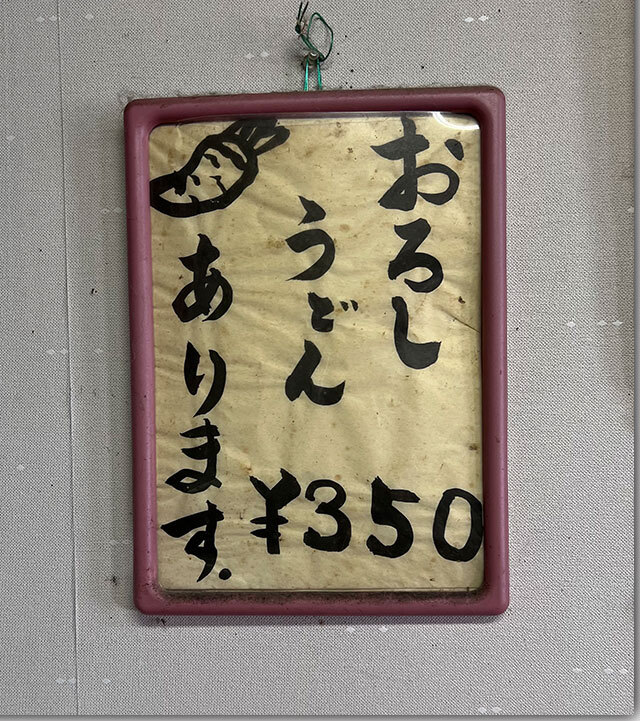 おろし
うどん
¥350
あります.